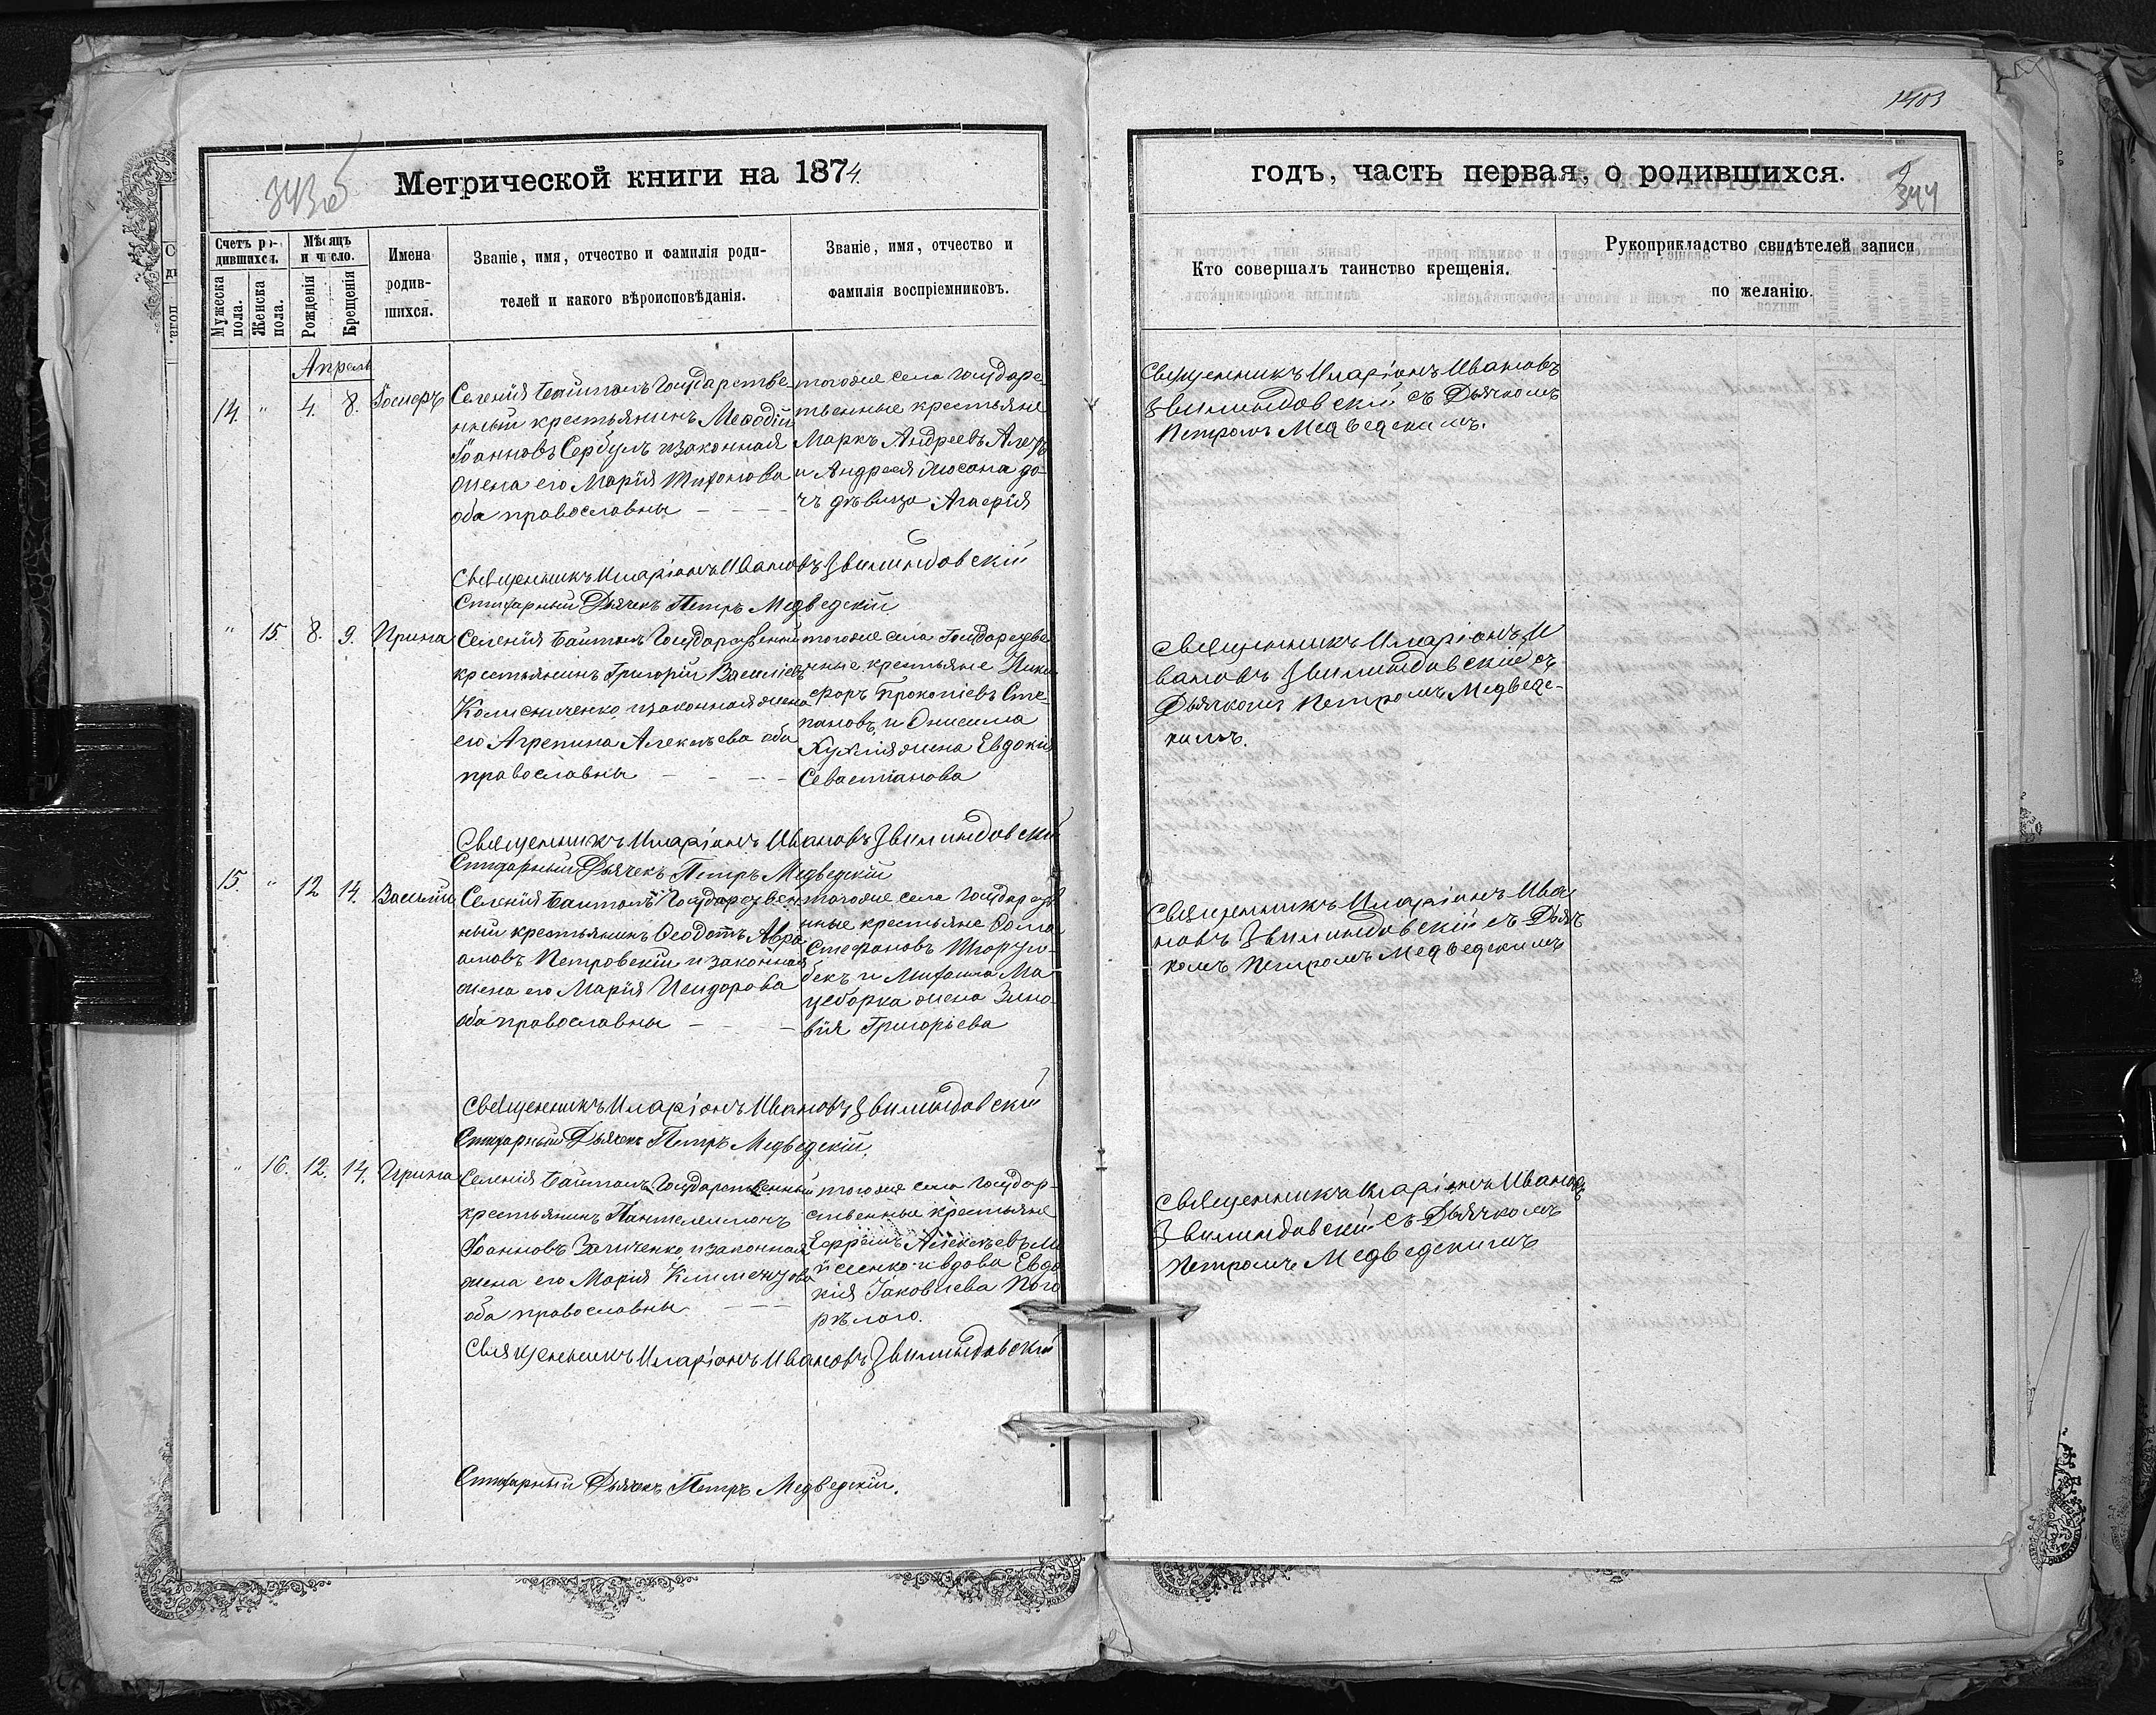 1403
343 об
Метрической книги на 1874.
годъ, часть первая, о родившихся.
344
Счетъ ро-
дившихся.
Мужеска
пола.
Женска
пола.
Мѣсяцъ
и число.
Рожденія
Крещенія
Имена
родив-
шихся.
Званіе, имя, отчество и фамилія роди-
телей и какого вѣроисповѣданія.
Званіе, имя, отчество и
фамилія воспріемниковъ.
Кто совершалъ таинство крещенія.
Рукоприкладство свидѣтелей записи
по желанію.
Апрель
14. " 4. 8. Іосифъ
Селенія Баймакъ Государстве-
нный крестьянинъ Меѳодій
Іоанновъ Сербулъ и законная
жена его Марія Тихонова
оба православны
тогоже села Государс-
твенные крестьяне
Маркъ Андреевъ
и Андрея до-
чь дѣвица
Священникъ Иларіонъ Ивановъ
съ Дьячкомъ
Петромъ Медведскимъ.
Священникъ Иларіонъ Ивановъ
Стихарный Дьячекъ Петръ Медведскій
" 15. 8. 9. Ирина
Селенія Государственный
крестьянинъ Григорій Василіевъ
Колисниченко и законная жена
его Агрепина Алексѣева оба
православны
тогоже села Государстве
нные крестьяне Ники
форъ Прокопіевъ Сте-
пановъ и Онисима
жена Евдокія
Севастіанова
Священникъ Иларіонъ И
вановъ съ
Дьячкомъ Петромъ Медведс-
кимъ.
Священникъ Иларіонъ Ивановъ
Стихарный Дьячекъ Петръ Медведскій
15. " 12 14. Василій
Селенія Государствен
ный крестьянинъ Ѳеодотъ Авра
амовъ Петровскій и законная
жена его Марія Исидорова
оба православны
тогоже села Государств
нные крестьяне Ѳома
Стефановъ
бекъ и Михаила Ма
цеборка жена Зино
вія Григорьева
Священникъ Иларіонъ Ива
новъ съ Дьяч
комъ Петромъ Медведскимъ
Священникъ Иларіонъ Ивановъ
Стихарный Дьячекъ Петръ Медведскій.
" 16. 12. 14. Ирина
Селенія Государственный
крестьянинъ Пантелеимонъ
Іоанновъ и законная
жена его Марія Климентова
оба православны
тогоже села Государ-
ственные крестьяне
Ефремъ Алексѣевъ Мо
исеенко и вдова Евдо
кія Іаковлева Пого
рѣлого.
Священникъ Иларіонъ Ивановъ
съ Дьячкомъ
Петромъ Медведскимъ
Священникъ Иларіонъ Ивановъ
Стихарный Дьячекъ Петръ Медведскій.